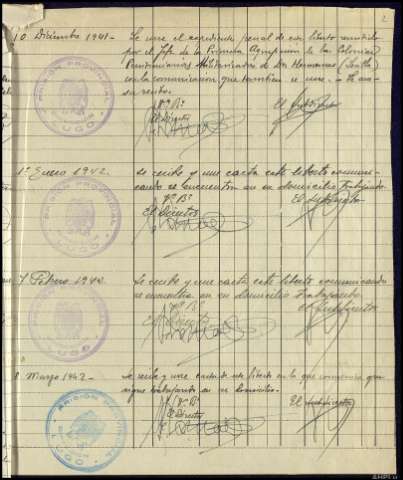 2
10 Diciembre 1941.-
Se une el expediente penal de este liberto remitido
por el Jefe de la Primera Agrupación de las Colonias
Penitenciarias Militarizadas de Dos Hermanas (Sevilla)
con la comunicación que también se une.
Vº Bº
El Director
El Subdirector
PRISION PROVINCIAL
LUGO
1º Enero 1942.-
Se recibe y une carta este liberto comuni-
cando se encuentra en su domicilio trabajando.
Vº Bº
El Director
El Subdirector
PRISION PROVINCIAL
LUGO
Febrero 1942.
Se recibe y une carta este liberto comunicando
se encuentra en su domicilio trabajando
Vº Bº
El Director
El Subdirector
PRISION PROVINCIAL
LUGO
8 Marzo 1942.-
se recibe y une carta de este liberto en la que comunica que
sigue trabajando en su domicilio.
Vº Bº
El Director
El Subdirector
PRISION PROVINCIAL
LUGO
AHPLu